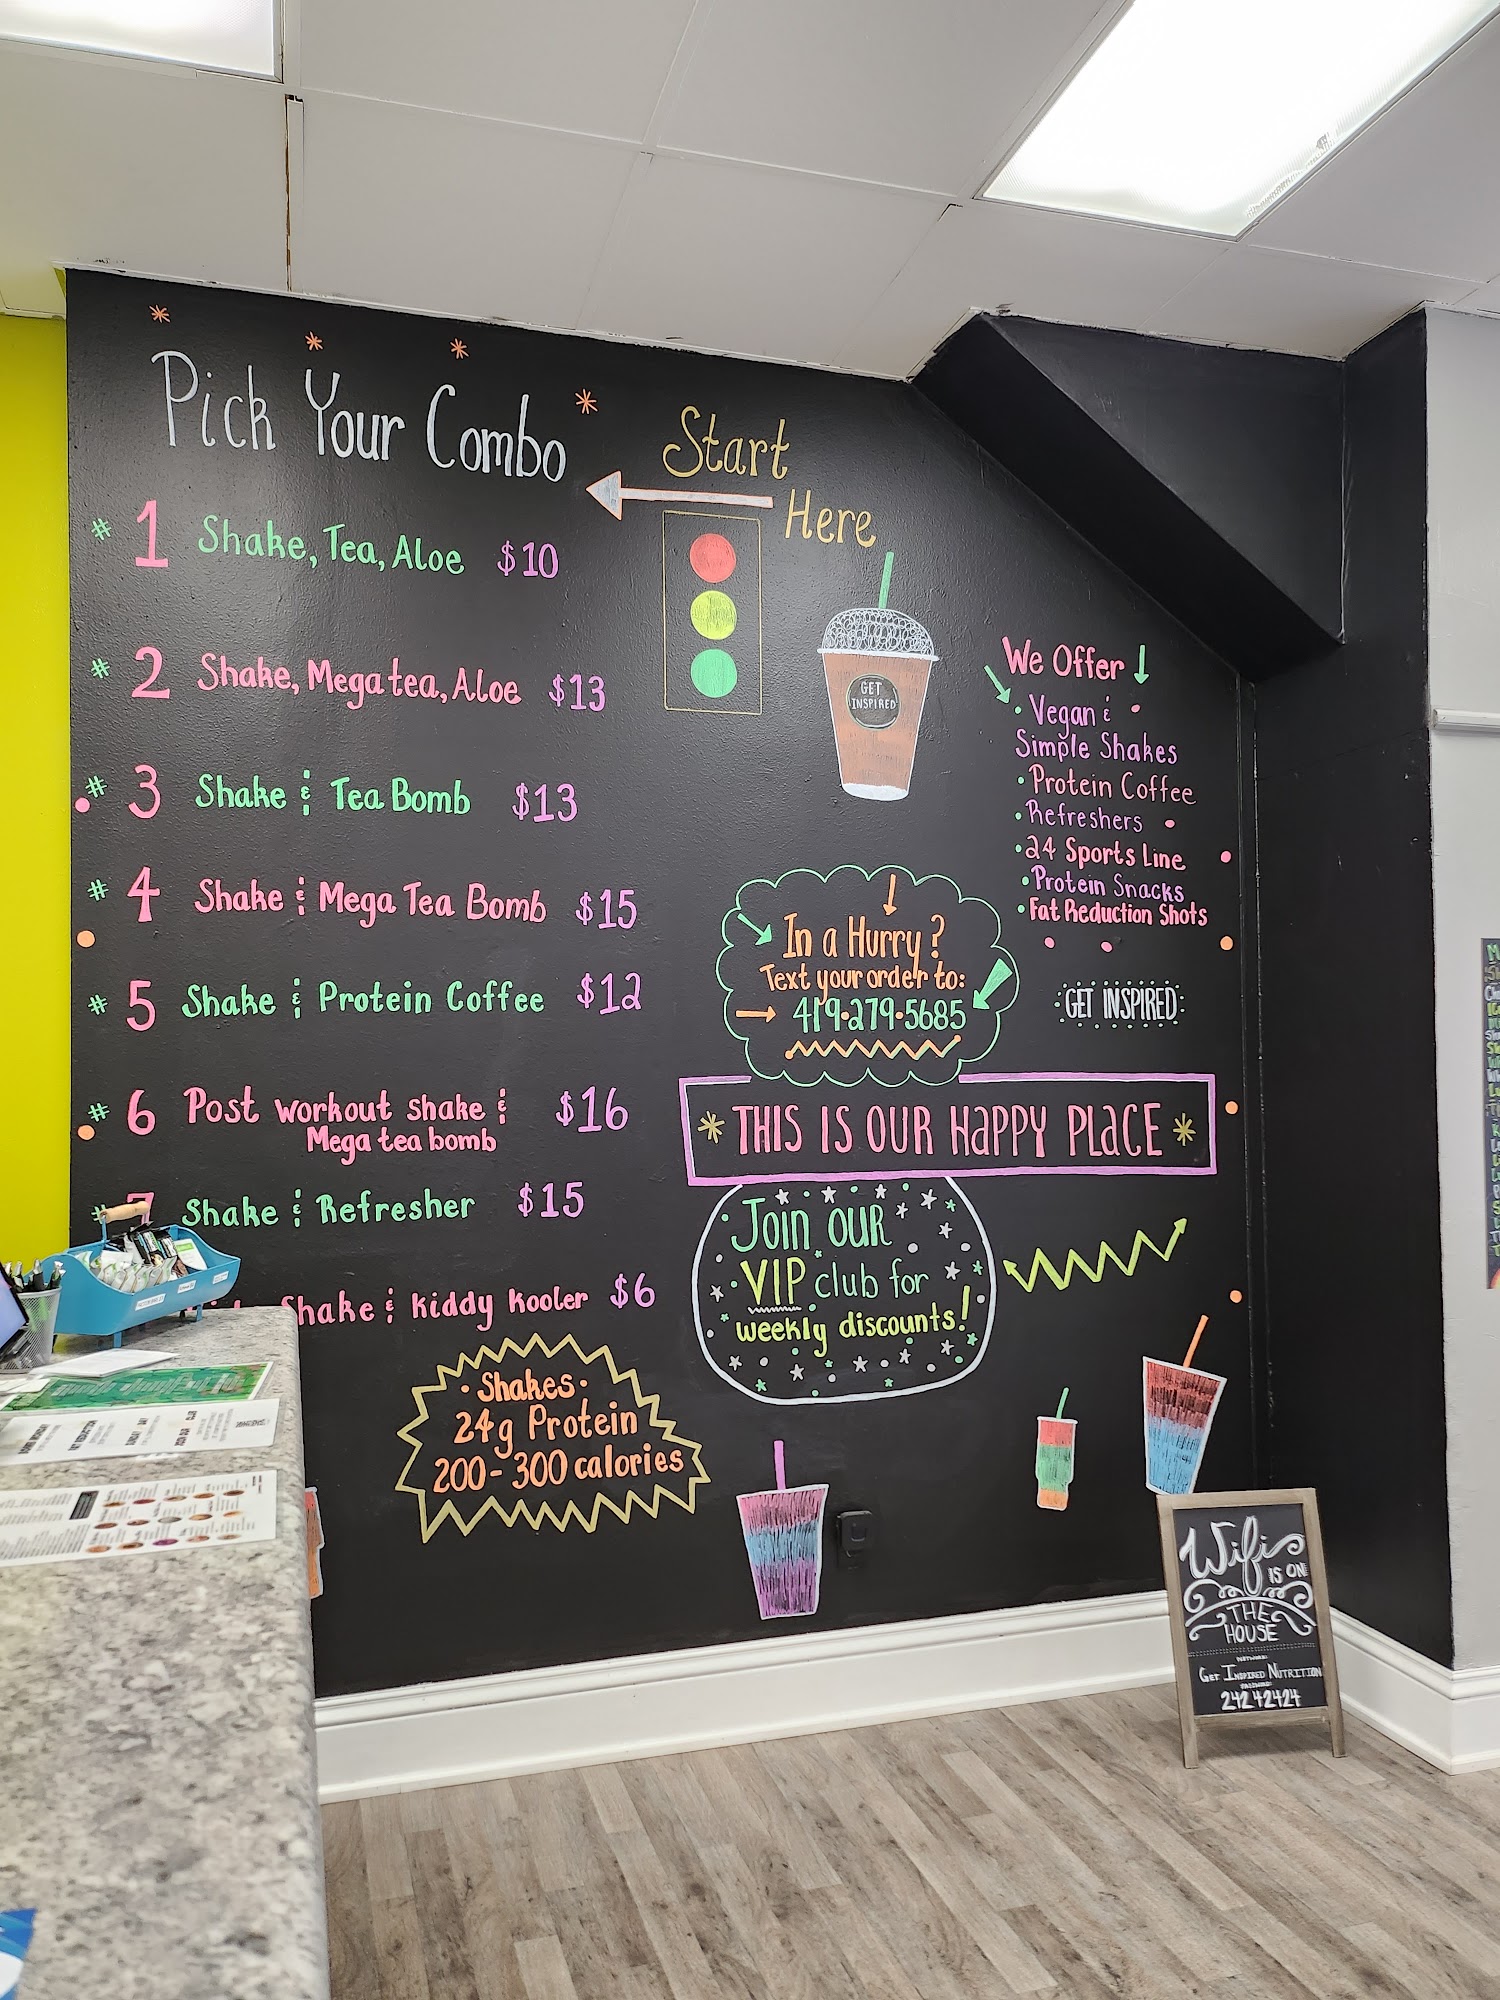 Pick Your Combo
Start
Here
# 1 Shake, Tea, Aloe $10
# 2 Shake, Mega tea, Aloe $13
# 3 Shake & Tea Bomb $13
# 4 Shake & Mega Tea Bomb $15
# 5 Shake & Protein Coffee $12
# 6 Post workout shake & $16
Mega tea bomb
# 7 Shake & Refresher $15
Shake & Kiddy Kooler $6
Shakes
24g Protein
200-300 calories
GET
INSPIRED
We Offer
• Vegan &
Simple Shakes
• Protein Coffee
• Refreshers
• 24 Sports Line
• Protein Snacks
• Fat Reduction Shots
GET INSPIRED
In a Hurry?
Text your order to:
419•279•5685
THIS IS OUR HaPPY PLaCE
Join our
VIP club for
weekly discounts!
Wifi
IS ON
THE
HOUSE
NETWORK:
GET INSPIRED NUTRITION
PASSWORD:
24242424